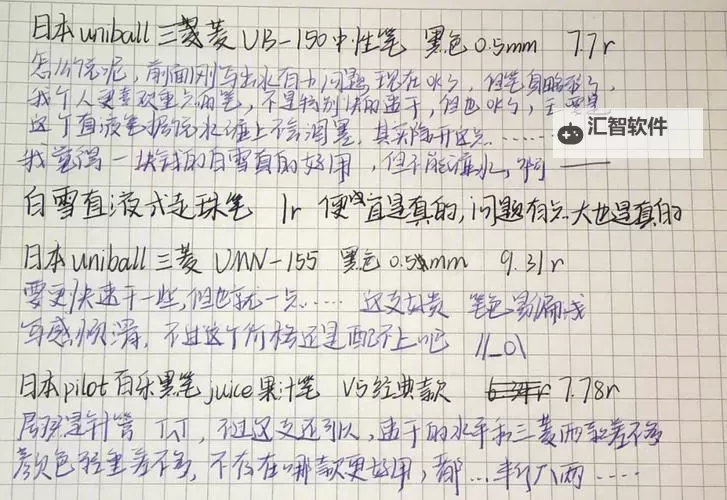 日本uniball 三菱 UB-150中性笔 黑色0.5mm 7.7r
怎么说呢，前面刚写出水有小问题 现在ok了，但笔真略轻了，
我个人更喜欢重点的笔，不是特别快的速干，但也ok了，主要是
汇智软件
这个直液
我觉得一块钱的白雪真的好用，但不能灌水，啊
白雪直液式走珠笔 1r 便宜是真的，问题有点大也是真的
日本uniball 三菱 UMN-155 黑色 0.5mm 9.31r
要更快速干一些，但也就一点…… 这支好贵 笔色易偏浅
写感顺滑，不过这个价格还是配不上吧 //_0\
日本pilot百乐黑笔juice果汁笔 VS经典款 7.78r
居然是针管 T^T，不过这支还可以，速干的水平和三菱两款差不多
颜色轻重差不多，不存在哪款更好用，都…半斤八两……